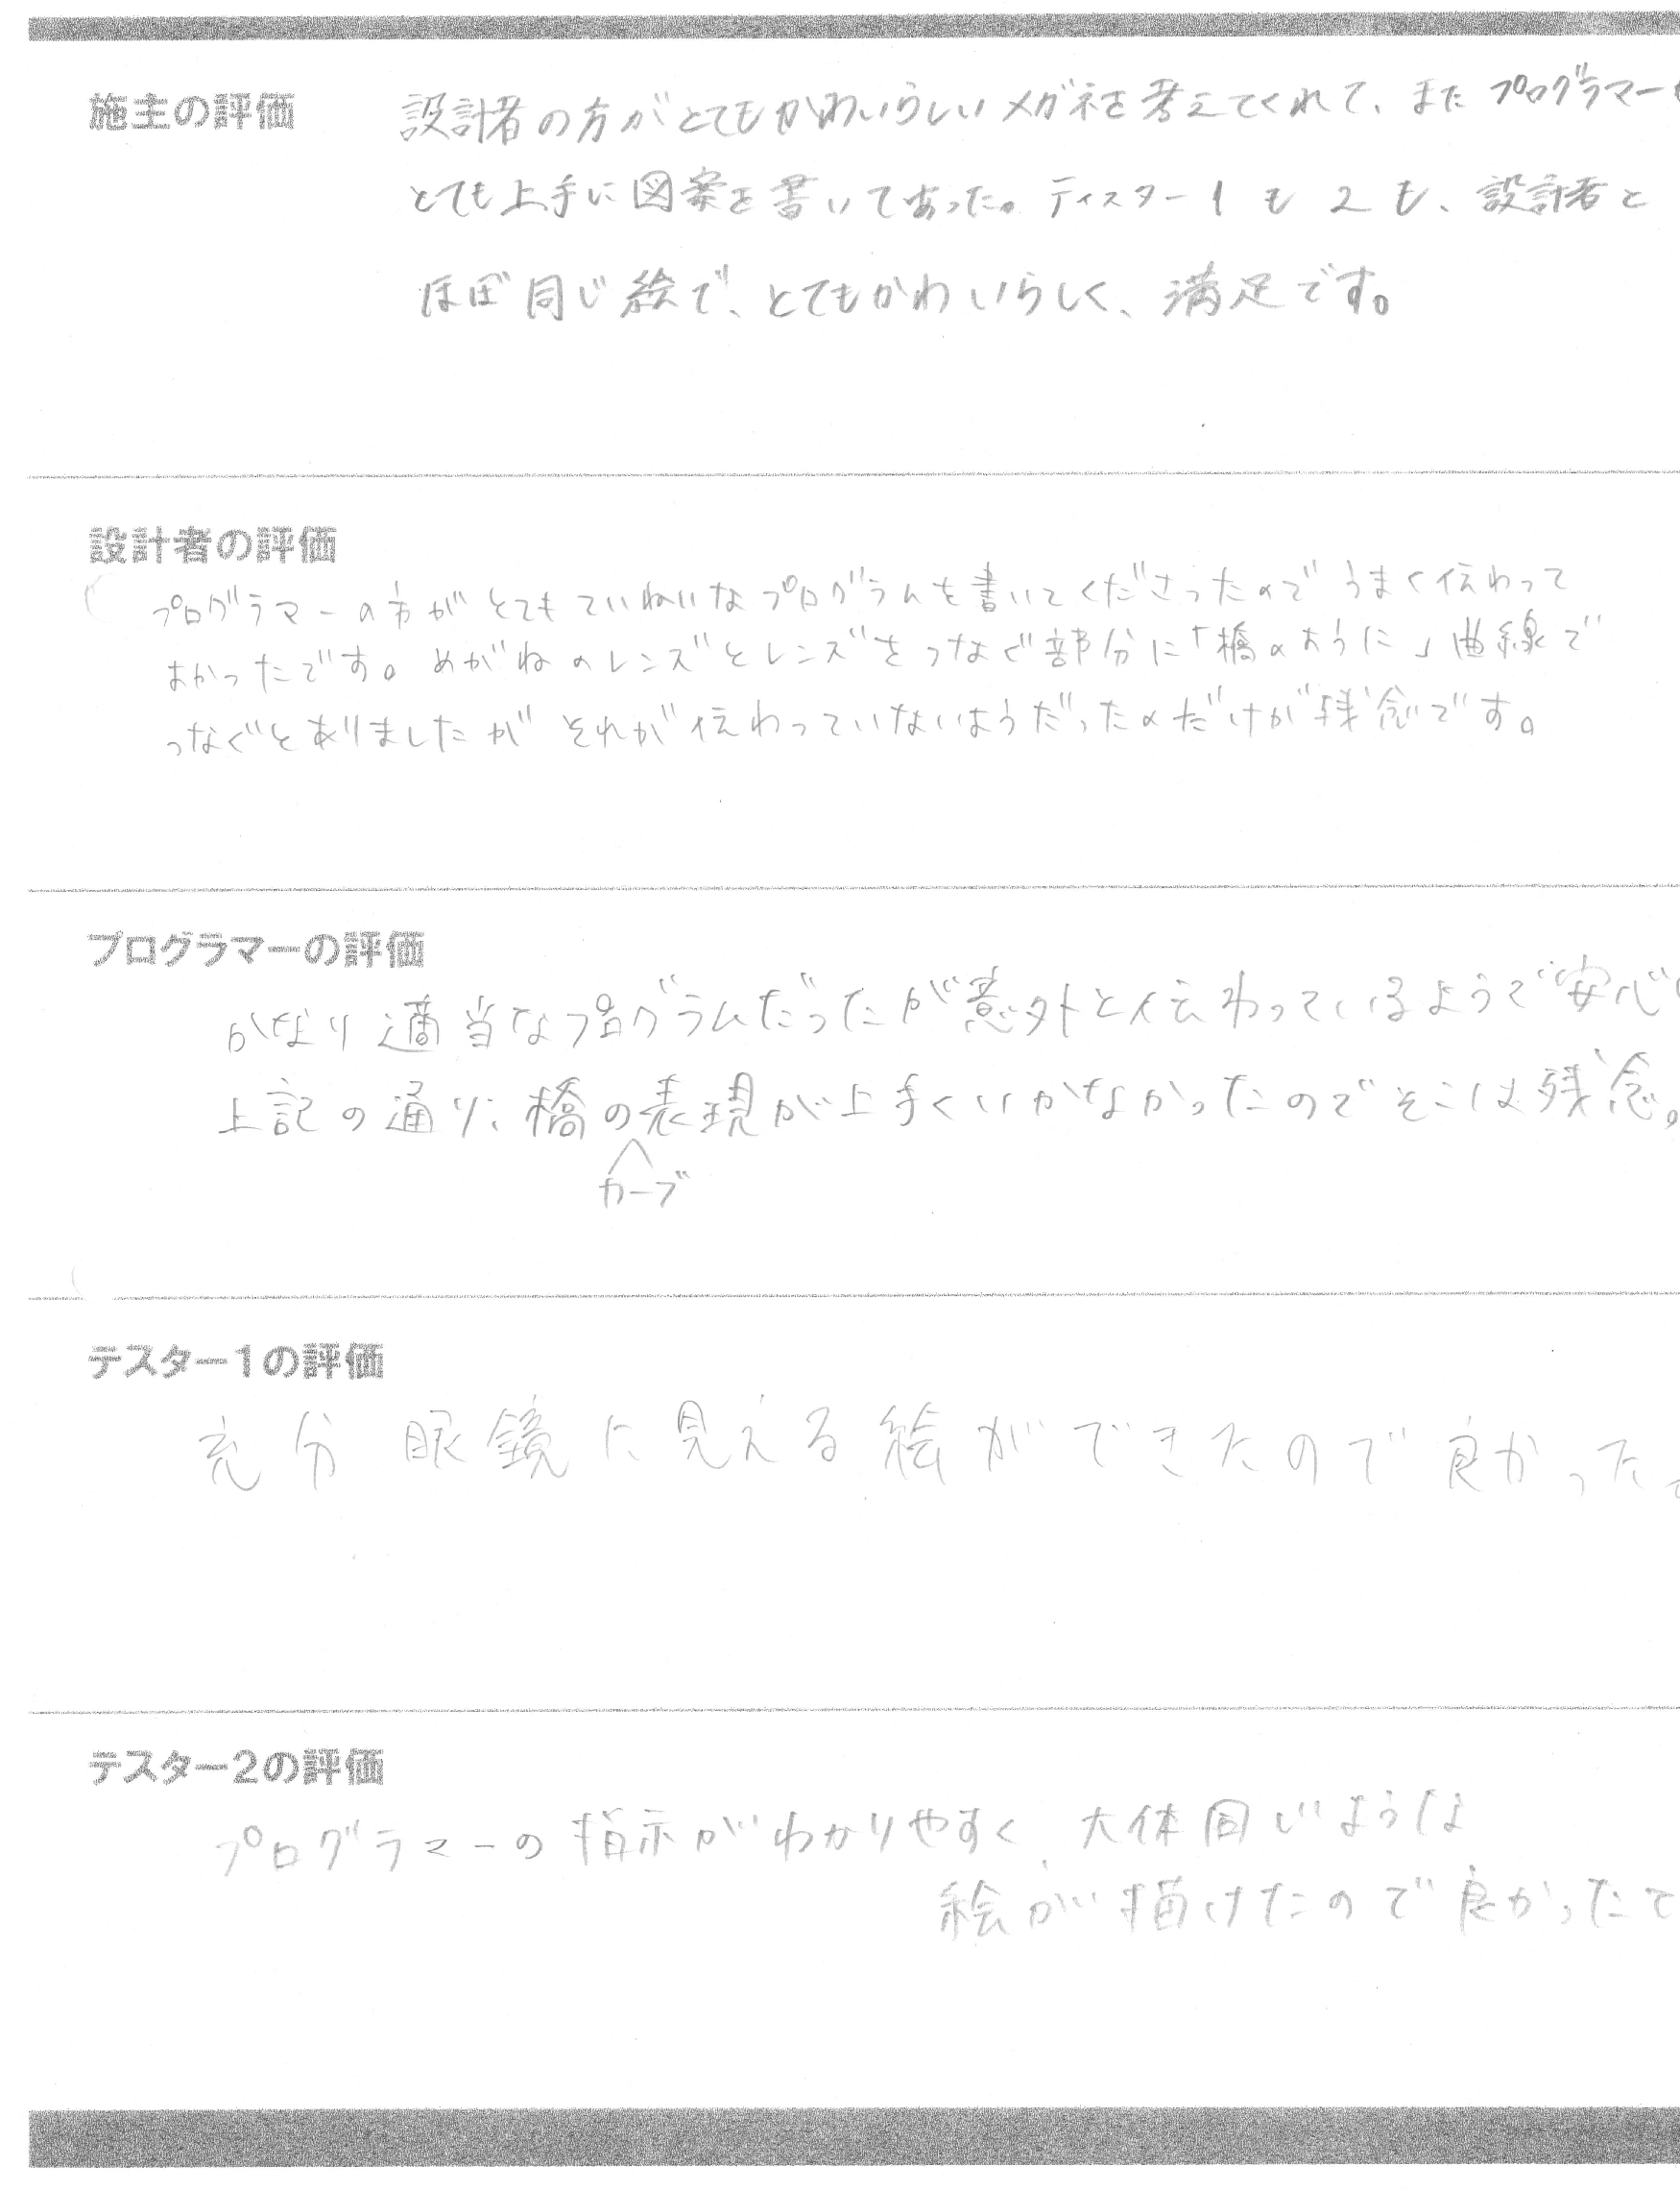 施主の評価
設計者の方がとてもかわいらしいメガネを考えてくれて、また プログラマー
とても上手に図案を書いてあった。ティスター1も2も、設計者と
ほぼ同じ絵で、とてもかわいらしく、満足です。
設計者の評価
プログラマーの方がとてもていねいなプログラムを書いてくださったのでうまく伝わって
よかったです。めがねのレンズとレンズをつなぐ部分に「橋のように」曲線で
つなぐとありましたが それが伝わっていないようだったのだけが残念です。
プログラマーの評価
かなり適当なプログラムだったが意外と伝わっているようで安心
上記の通り、橋の表現が上手くいかなかったのでそこは残念。
カーブ
テスター1の評価
充分 眼鏡に見える絵ができたので良かった。
テスター2の評価
プログラマーの指示がわかりやすく、大体同じような
絵が描けたので良かったで